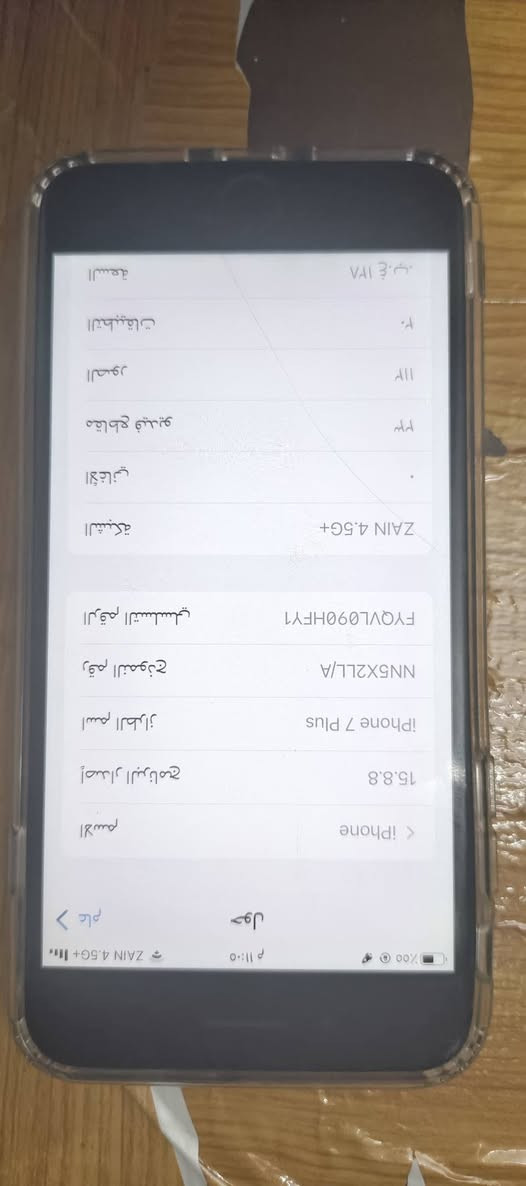 ZAIN 4.5G+ ١١:٠٥ م ٥٥٪
عام حول
الاسم iPhone
إصدار البرنامج 15.8.8
اسم الطراز iPhone 7 Plus
رقم النموذج NN5X2LL/A
الرقم التسلسلي FYQVL090HFY1
الشبكة ZAIN 4.5G+
الأغاني ٠
مقاطع فيديو ٢٣
الصور ١١٢
التطبيقات ٢٠
السعة ١٢٨ غ.ب.